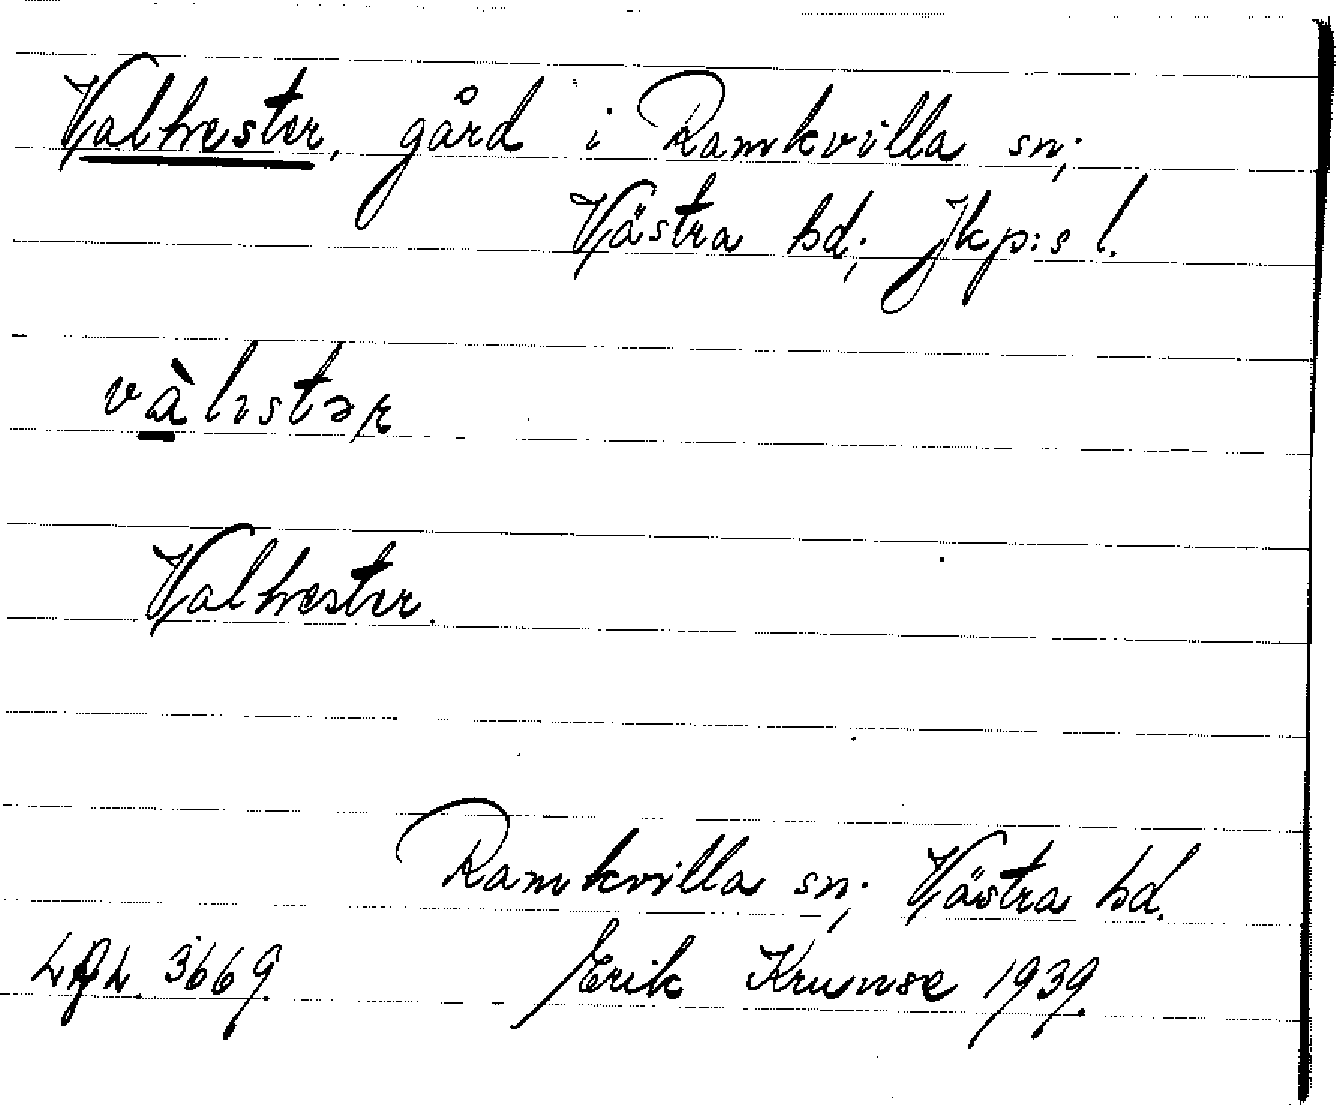 Valhester, gård i Ramkvilla sn;
Västra hd; Jkp:s l.
Valhester.
Ramkvilla sn; Västra hd.
3669. Erik Krunse 1939.